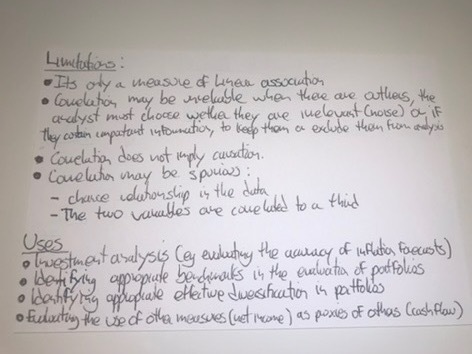 Limitations :
• Its only a measure of linear association
• Correlation may be unreliable when there are outliers, the
analyst must choose wether they are irrelevant (noise) or if
they contain important information, to keep them or exclude them from analysis
• Correlation does not imply causation.
• Correlation may be spurious :
- chance relationship in the data
- The two variables are correlated to a third
Uses
• Investment analysis (eg evaluating the accuracy of inflation forecasts)
• Identifying appropriate benchmarks in the evaluation of portfolios
• Identifying appropriate effective diversification in portfolios
• Evaluating the use of other measures (net income) as proxies of others (cashflow)